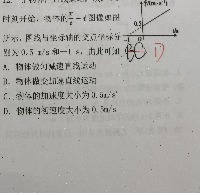 时刻开始，物体的x/t-t图像如图
所示，图线与坐标轴的交点坐标分
别为0.5 m/s和-1 s，由此可知
A．物体做匀减速直线运动
B．物体做变加速直线运动
C．物体的加速度大小为0.5m/s²
D．物体的初速度大小为0.5m/s
0.5
-1
0
t/s
B C D